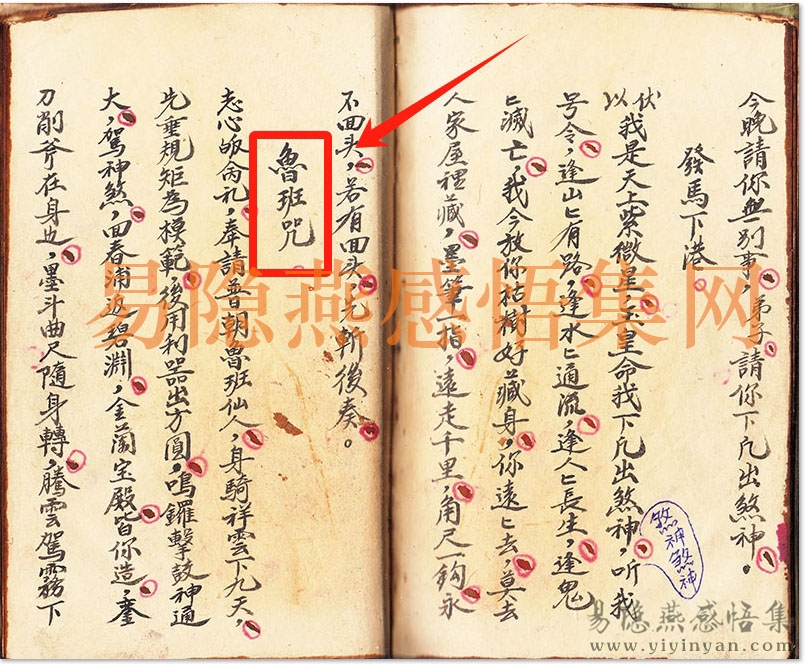 今晚請你無別事，弟子請你下凢出煞神。
發馬下港
伏以我是天上紫微星，玉皇命我下凢出煞神，听我
号令，逢山匕有路，逢水匕通流，逢人匕長生，逢鬼
匕滅亡，我今放你枯樹好藏身，你遠匕去，莫去
人家屋裡藏，墨筆一指，遠走千里，角尺一鈎永
不回头，若有回头，先斬後奏。
魯班咒
志心皈命礼，奉請普朝魯班仙人，身騎祥雲下九天，
先垂規矩為模範，後用利器出方圓，鳴鑼擊鼓神通
大，駕神煞，回春浦返碧淵，金蘭宝殿皆你造，
刀削斧在身边，墨斗曲尺隨身轉，騰雲駕霧下
煞神煞神
易隐燕感悟集网
易隐燕感悟集
www.yiyinyan.com